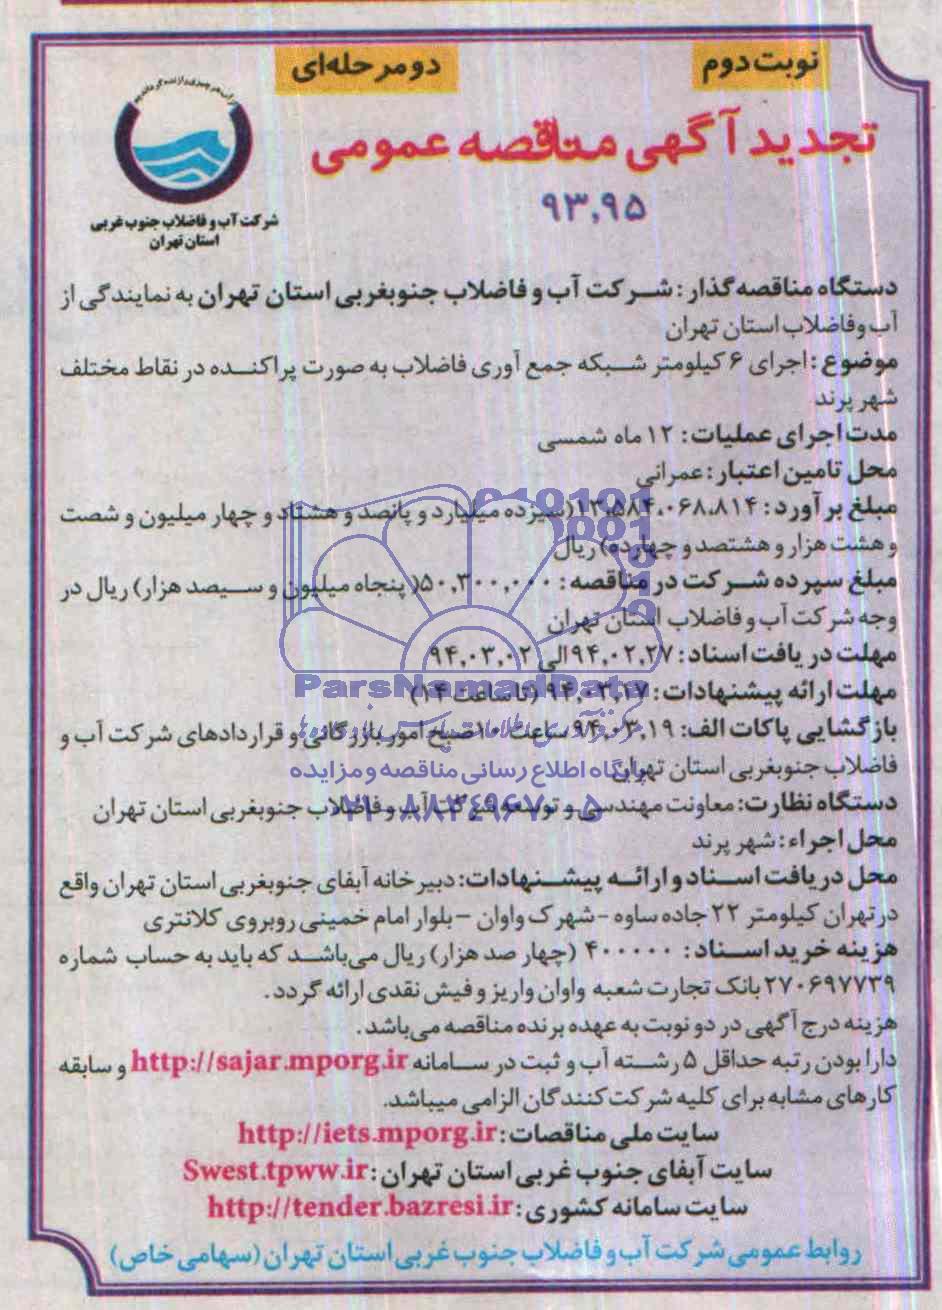 نوبت دوم
دو مرحله‌ای
تجدید آگهی مناقصه عمومی
۹۳,۹۵
شرکت آب و فاضلاب جنوب غربی
استان تهران
دستگاه مناقصه گذار: شرکت آب و فاضلاب جنوبغربی استان تهران به نمایندگی از
آب وفاضلاب استان تهران
موضوع: اجرای ۶ کیلومتر شبکه جمع آوری فاضلاب به صورت پراکنده در نقاط مختلف
شهر پرند
مدت اجرای عملیات: ۱۲ ماه شمسی
محل تامین اعتبار: عمرانی
مبلغ برآورد: ۱۳,۵۸۴,۰۶۸,۸۱۴(سیزده میلیارد و پانصد و هشتاد و چهار میلیون و شصت
و هشت هزار و هشتصد و چهارده) ریال
مبلغ سپرده شرکت در مناقصه: ۵۰,۳۰۰,۰۰۰( پنجاه میلیون و سیصد هزار) ریال در
وجه شرکت آب و فاضلاب استان تهران
مهلت دریافت اسناد: ۹۴,۰۲,۲۷ الی ۹۴,۰۳,۰۲
مهلت ارائه پیشنهادات: ۹۴,۰۳,۱۷ (تا ساعت ۱۴)
ParsNamadData
بازگشایی پاکات الف: ۹۴,۰۳,۱۹ ساعت ۱۰ صبح امور بازرگانی و قراردادهای شرکت آب و
فاضلاب جنوبغربی استان تهران
پایگاه اطلاع رسانی مناقصه و مزایده
دستگاه نظارت: معاونت مهندسی و توسعه شرکت آب و فاضلاب جنوبغربی استان تهران
۰۲۱-۸۸۳۴۹۶۷۰-۵
محل اجراء: شهر پرند
محل دریافت اسناد و ارائه پیشنهادات: دبیرخانه آبفای جنوبغربی استان تهران واقع
در تهران کیلومتر ۲۲ جاده ساوه - شهرک واوان - بلوار امام خمینی روبروی کلانتری
هزینه خرید اسناد: ۴۰۰۰۰۰ (چهار صد هزار) ریال می‌باشد که باید به حساب شماره
۲۷۰۶۹۷۷۳۹ بانک تجارت شعبه واوان واریز و فیش نقدی ارائه گردد.
هزینه درج آگهی در دو نوبت به عهده برنده مناقصه می‌باشد.
دارا بودن رتبه حداقل ۵ رشته آب و ثبت در سامانه http://sajar.mporg.ir و سابقه
کارهای مشابه برای کلیه شرکت کنندگان الزامی میباشد.
سایت ملی مناقصات: http://iets.mporg.ir
سایت آبفای جنوب غربی استان تهران: Swest.tpww.ir
سایت سامانه کشوری: http://tender.bazresi.ir
روابط عمومی شرکت آب و فاضلاب جنوب غربی استان تهران (سهامی خاص)